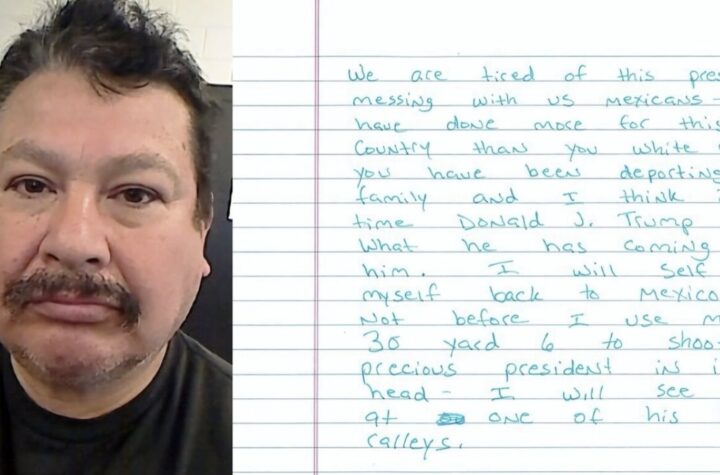 We are tired of this pres
messing with us Mexicans -
have done more for this
Country than you white
you have been deporting
family and I think i
time Donald J. Trump
What he has coming
him. I will Self
myself back to Mexico
Not before I use m
30 yard 6 to shoo
precious president in i
head - I will see
at one of his
ralleys.